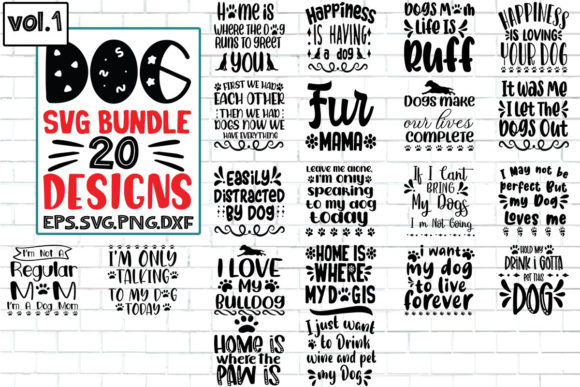 vol.1
DOG
SVG BUNDLE
20
DESIGNS
EPS.SVG,PNG,DXF
Home is
WHERE THE DOG
RUNS TO GREET
YOU
HAPPINESS
IS HAVING
a dog
DOGS MOM
LIFE IS
RUFF
HAPPINESS
IS LOVING
YOUR DOG
FIRST WE HAD
EACH OTHER
THEN WE HAD
DOGS NOW WE
HAVE EVERYTHING
FUR
MAMA
DOGS MAKE
our lives
COMPLETE
IT WAS ME
I LET THE
DOGS OUT
EASILY
DISTRACTED
BY DOG
Leave me alone,
I'm only
speaking
to my dog
today
If I Cant
BRING
My Dogs
I'm Not Going
I May not be
Perfect But
my Dog
Loves me
I'm Not A
Regular
MOM
I'm A Dog Mom
I'M ONLY
TALKING
TO MY DOG
TODAY
I LOVE
MY
BULLDOG
HOME IS
WHERE
MY DOG IS
i want
my dog
to live
forever
HOLD MY
DRINK I GOTTA
PET THIS
DOG
HOME IS
where the
PAW IS
I just want
to Drink
wine and pet
my Dog